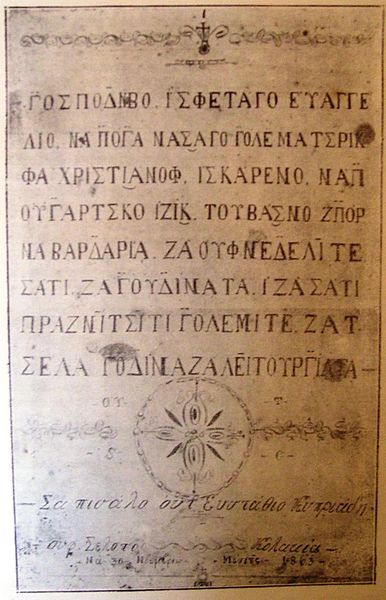 ΓΟΣΠΟΔΝΒΟ, ΙΣΦΕΤΑΓΟ ΕΥΑΓΓΕ
ΛΙΟ, ΝΑ ΠΟΓΑ ΝΑΣΑΓΟ ΓΟΛΕΜΑ ΤΣΡΙΚ
ΦΑ ΧΡΙΣΤΙΑΝΟΦ, ΙΣΚΑΡΕΝΟ, ΝΑΠ
ΟΥΓΑΡΤΣΚΟ ΙΖΙΚ. ΤΟΥΒΑΣΝΟ ΖΠΟΡ
ΝΑ ΒΑΡΔΑΡΙΑ. ΖΑ ΟΥΦ ΝΕΔΕΛΙΤΕ
ΣΑΤΙ, ΖΑ ΓΟΥΔΙΝΑΤΑ, Ι ΖΑ ΣΑΤΙ
ΠΡΑΖΝΙΤΣΙΤΙ ΓΟΛΕΜΙΤΕ, ΖΑ Τ
ΣΕΛΑ ΓΟΔΙΝΑ ΖΑ ΛΕΙΤΟΥΡΓΙΑΤΑ —
ΟΥ - Τ -
— Σα πισαλο οὐτ Ευσταθιο Κυπριαδη
Σελοτο Κολακια
- Να 30 - Μεσετς - 1863 -